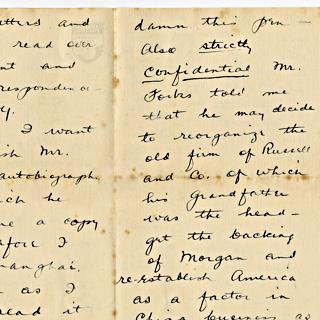 and
read over
and
responden-
y.
I want
ish Mr.
autobiograph
ich he
me a copy
before I
hanghai.
as I
read it
damn this pen —
Also strictly
confidential Mr.
Forbes told me
that he may decide
to reorganize the
old firm of Russell
and Co. of which
his grandfather
was the head —
get the backing
of Morgan and
re-establish America
as a factor in
China business as